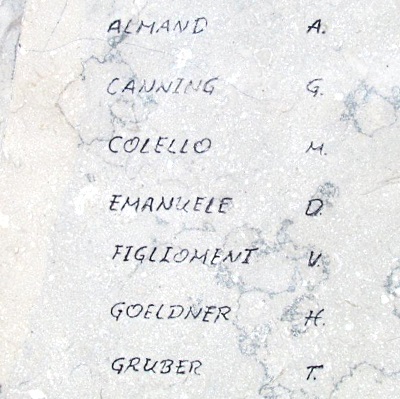 ALMAND A.
CANNING G.
COLELLO M.
EMANUELE D.
FIGLIOMENI V.
GOELDNER H.
GRUBER T.